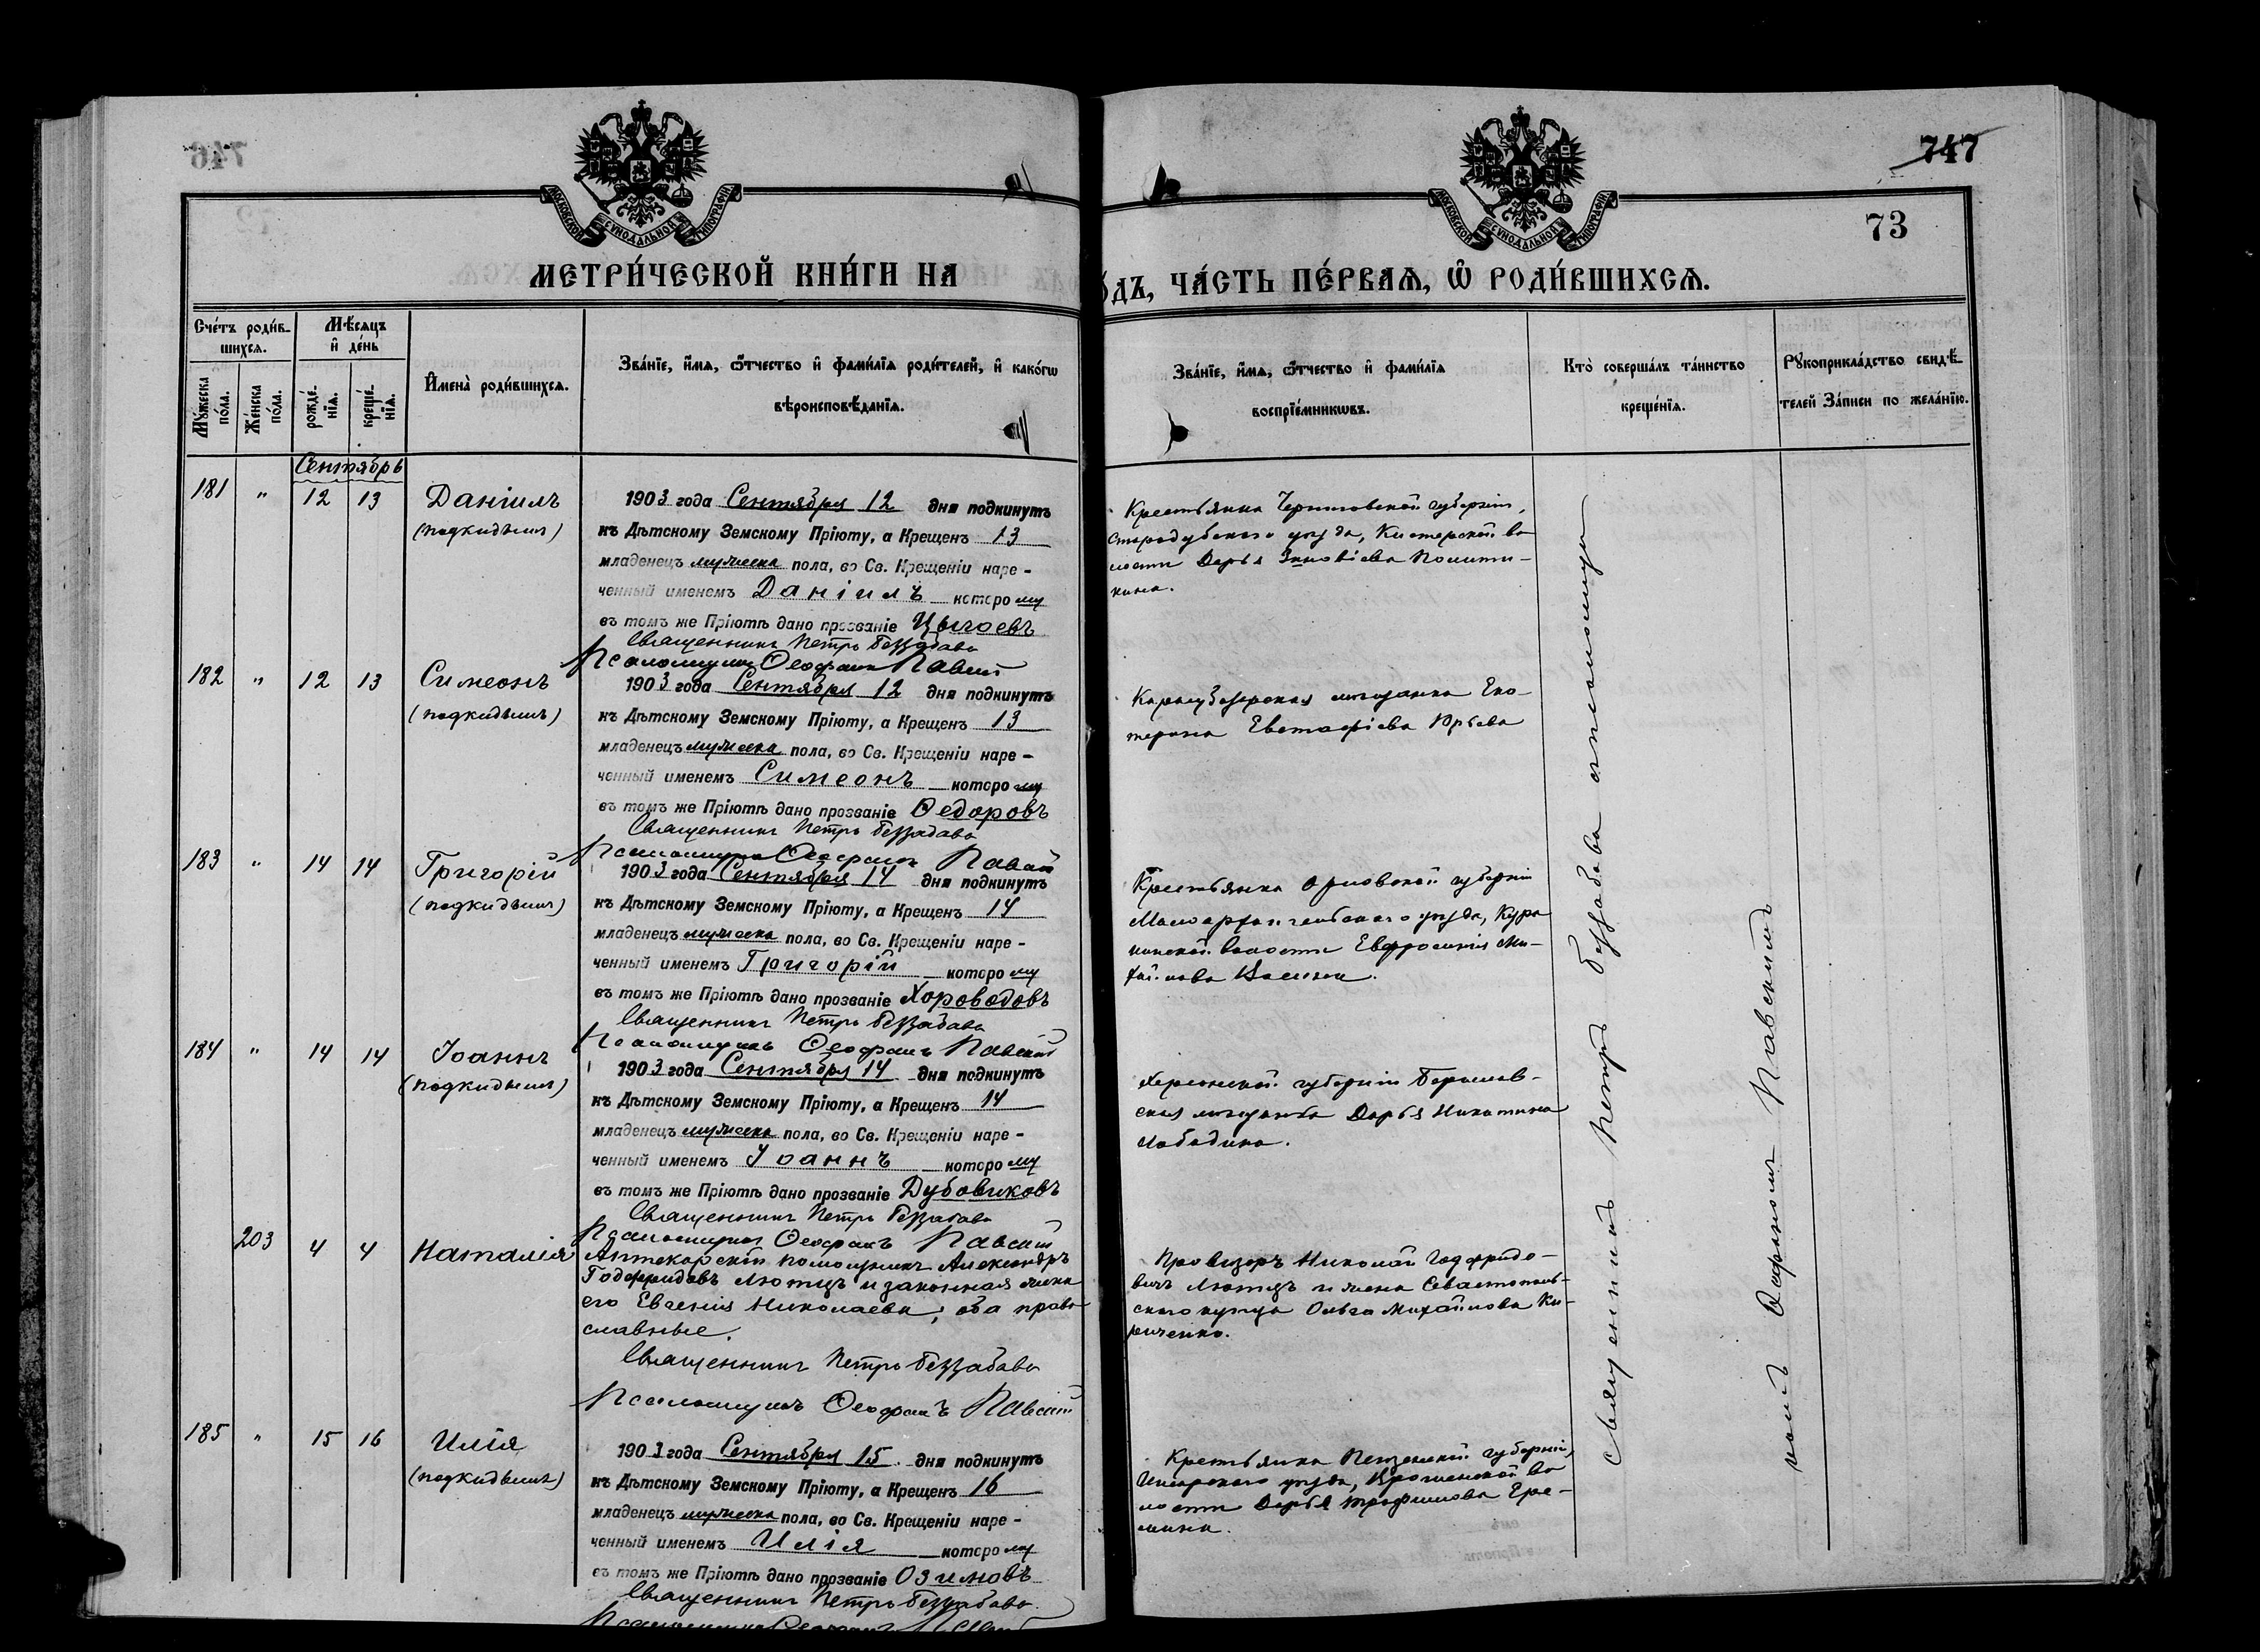 747
73
МОСКОВСКОЙ СѴНОДАЛЬНОЙ ТИПОГРАФІИ
МОСКОВСКОЙ СѴНОДАЛЬНОЙ ТИПОГРАФІИ
МЕТРИ́ЧЕСКОЙ КНИ́ГИ НА
О́ДЪ, ЧА́СТЬ ПЕ́РВАѦ, Ѿ РОДИ́ВШИХСѦ.
Сче́тъ роди́в-
шихсѧ.
Мѣ́сѧцъ
и҆ де́нь
Мꙋ́жеска
по́ла.
Же́нска
по́ла.
рожде́-
нїѧ.
креще́-
нїѧ.
И҆мена̀ роди́вшихсѧ.
Зва́нїе, и҆́мѧ, ѻ҆́тчество и҆ фами́лїѧ роди́телей, и҆ како́гѡ
вѣроисповѣ́данїѧ.
Зва́нїе, и҆́мѧ, ѻ҆́тчество и҆ фами́лїѧ
воспрїе́мникѡвъ.
Кто̀ соверша́лъ та́инство
креще́нїѧ.
Рꙋкоприкла́дство свидѣ́-
телей За́писи по жела́нїю.
Сентябрь
181 " 12 13 Даніилъ
(подкидышъ)
1903 года Сентября 12 дня подкинутъ
къ Дѣтскому Земскому Пріюту, а Крещенъ 13
младенецъ мужеска пола, во Св. Крещеніи наре-
ченный именемъ Даніилъ которому
въ томъ же Пріютѣ дано прозваніе Цыгоевъ
Священникъ Петръ Беззабава
Псаломщикъ Ѳеофанъ Павскій
Крестьянка Черниговской губерніи,
Стародубскаго уѣзда, Кистерской во
лости Дарья
кина.
182 " 12 13 Симеонъ
(подкидышъ)
1903 года Сентября 12 дня подкинутъ
къ Дѣтскому Земскому Пріюту, а Крещенъ 13
младенецъ мужеска пола, во Св. Крещеніи наре-
ченный именемъ Симеонъ которому
въ томъ же Пріютѣ дано прозваніе Ѳедоровъ
Священникъ Петръ Беззабава
Псаломщикъ Ѳеофанъ Павскій
Карасубазарская мѣщанка Ека-
терина Евстафіева Юрьева
183 " 14 14 Григорій
(подкидышъ)
1903 года Сентября 14 дня подкинутъ
къ Дѣтскому Земскому Пріюту, а Крещенъ 14
младенецъ мужеска пола, во Св. Крещеніи наре-
ченный именемъ Григорій которому
въ томъ же Пріютѣ дано прозваніе Хороводовъ
Священникъ Петръ Беззабава
Псаломщикъ Ѳеофанъ Павскій
Крестьянка Орловской губерніи
Малоархангельскаго уѣзда, Кура
кинской волости Евфросинія Ми-
хайлова
184 " 14 14 Іоаннъ
(подкидышъ)
1903 года Сентября 14 дня подкинутъ
къ Дѣтскому Земскому Пріюту, а Крещенъ 14
младенецъ мужеска пола, во Св. Крещеніи наре-
ченный именемъ Іоаннъ которому
въ томъ же Пріютѣ дано прозваніе Дубовиковъ
Священникъ Петръ Беззабава
Псаломщикъ Ѳеофанъ Павскій
Херсонской губерніи Берислав-
ская мѣщанка Дарья Никитина
Лободина.
203 4 4 Наталія
Аптекарскій помощникъ Александръ
Годфридовъ Лютцъ и законная жена
его Евгенія Николаева, оба право
славные.
Священникъ Петръ Беззабава
Псаломщикъ Ѳеофанъ Павскій
Провизоръ Николай Годфридо-
вичъ Лютцъ и жена Севастополь-
скаго купца Ольга Михайлова Ки-
риченко.
185 " 15 16 Илія
(подкидышъ)
1903 года Сентября 15 дня подкинутъ
къ Дѣтскому Земскому Пріюту, а Крещенъ 16
младенецъ мужеска пола, во Св. Крещеніи наре-
ченный именемъ Илія которому
въ томъ же Пріютѣ дано прозваніе Озимовъ
Священникъ Петръ Беззабава
Псаломщикъ Ѳеофанъ
Крестьянка Пензенской губерніи,
Инсарскаго уѣзда, во
лости Дарья Трофимова Ере-
мина.
Священникъ Петръ Беззабава съ псаломщи
комъ Ѳеофаномъ Павскимъ